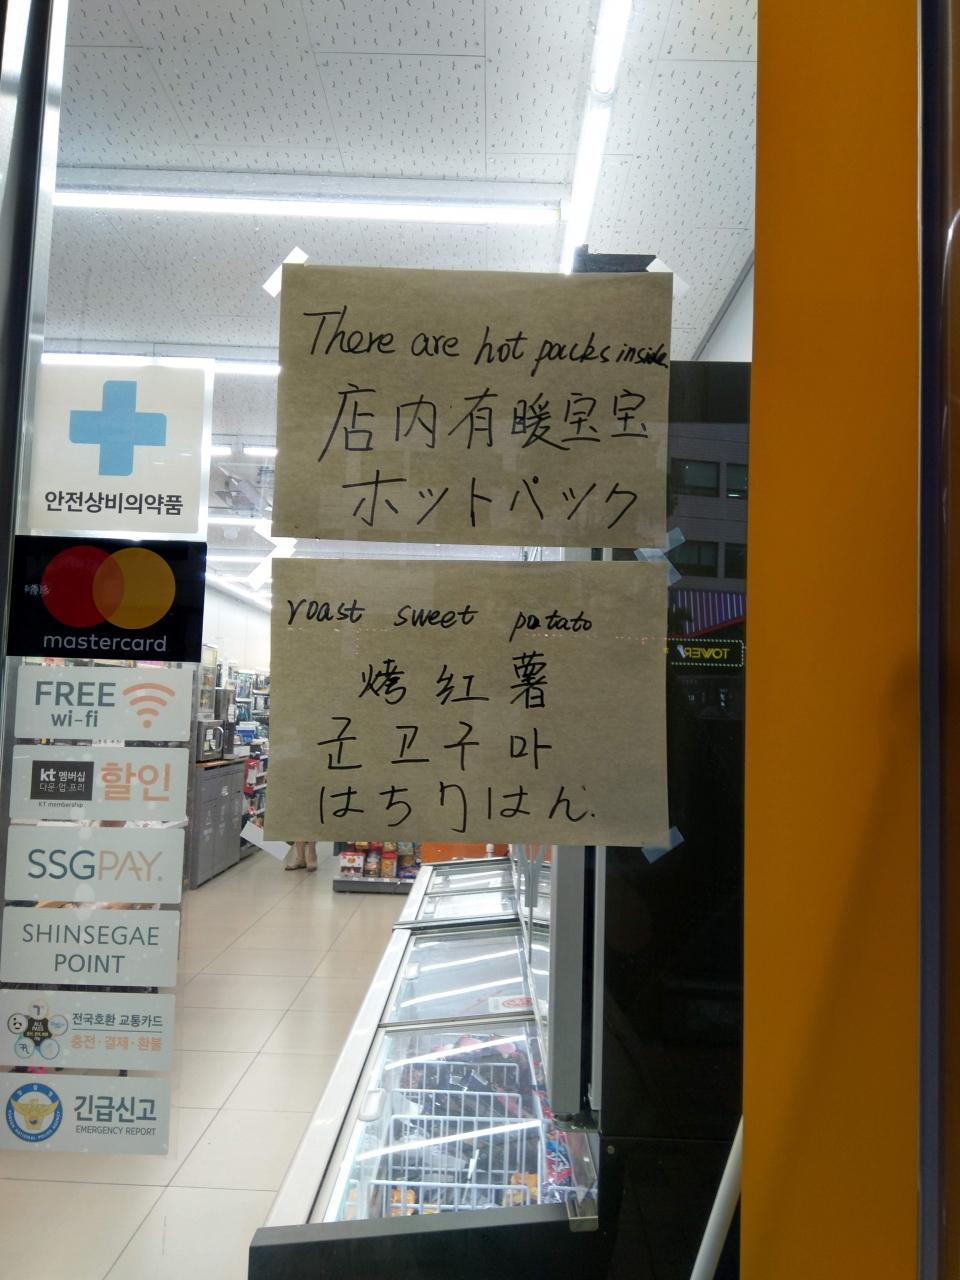 There are hot packs inside
店内有暖宝宝
ホットパック
roast sweet potato
烤红薯
군고구마
はちりはん.
안전상비의약품
mastercard
FREE
wi-fi
kt 멤버십
다운·업·프리
할인
KT membership
SSGPAY.
SHINSEGAE
POINT
전국호환 교통카드
충전·결제·환불
긴급신고
EMERGENCY REPORT
TOWER